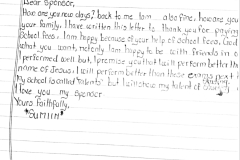 Dear Sponsor,
How are you now days? back to me I am also fine. how are you
your family. I have written this letter to thank you for paying
School fees. I am happy because of your help of school fees. God
what you want, I am happy to be with friends in
performed well but, I promise you that I will perform better
name of Jesus. I will perform better than these exams next
My school is called "talents" but I will show my talent of
I love you my Sponsor
Yours Faithfully,